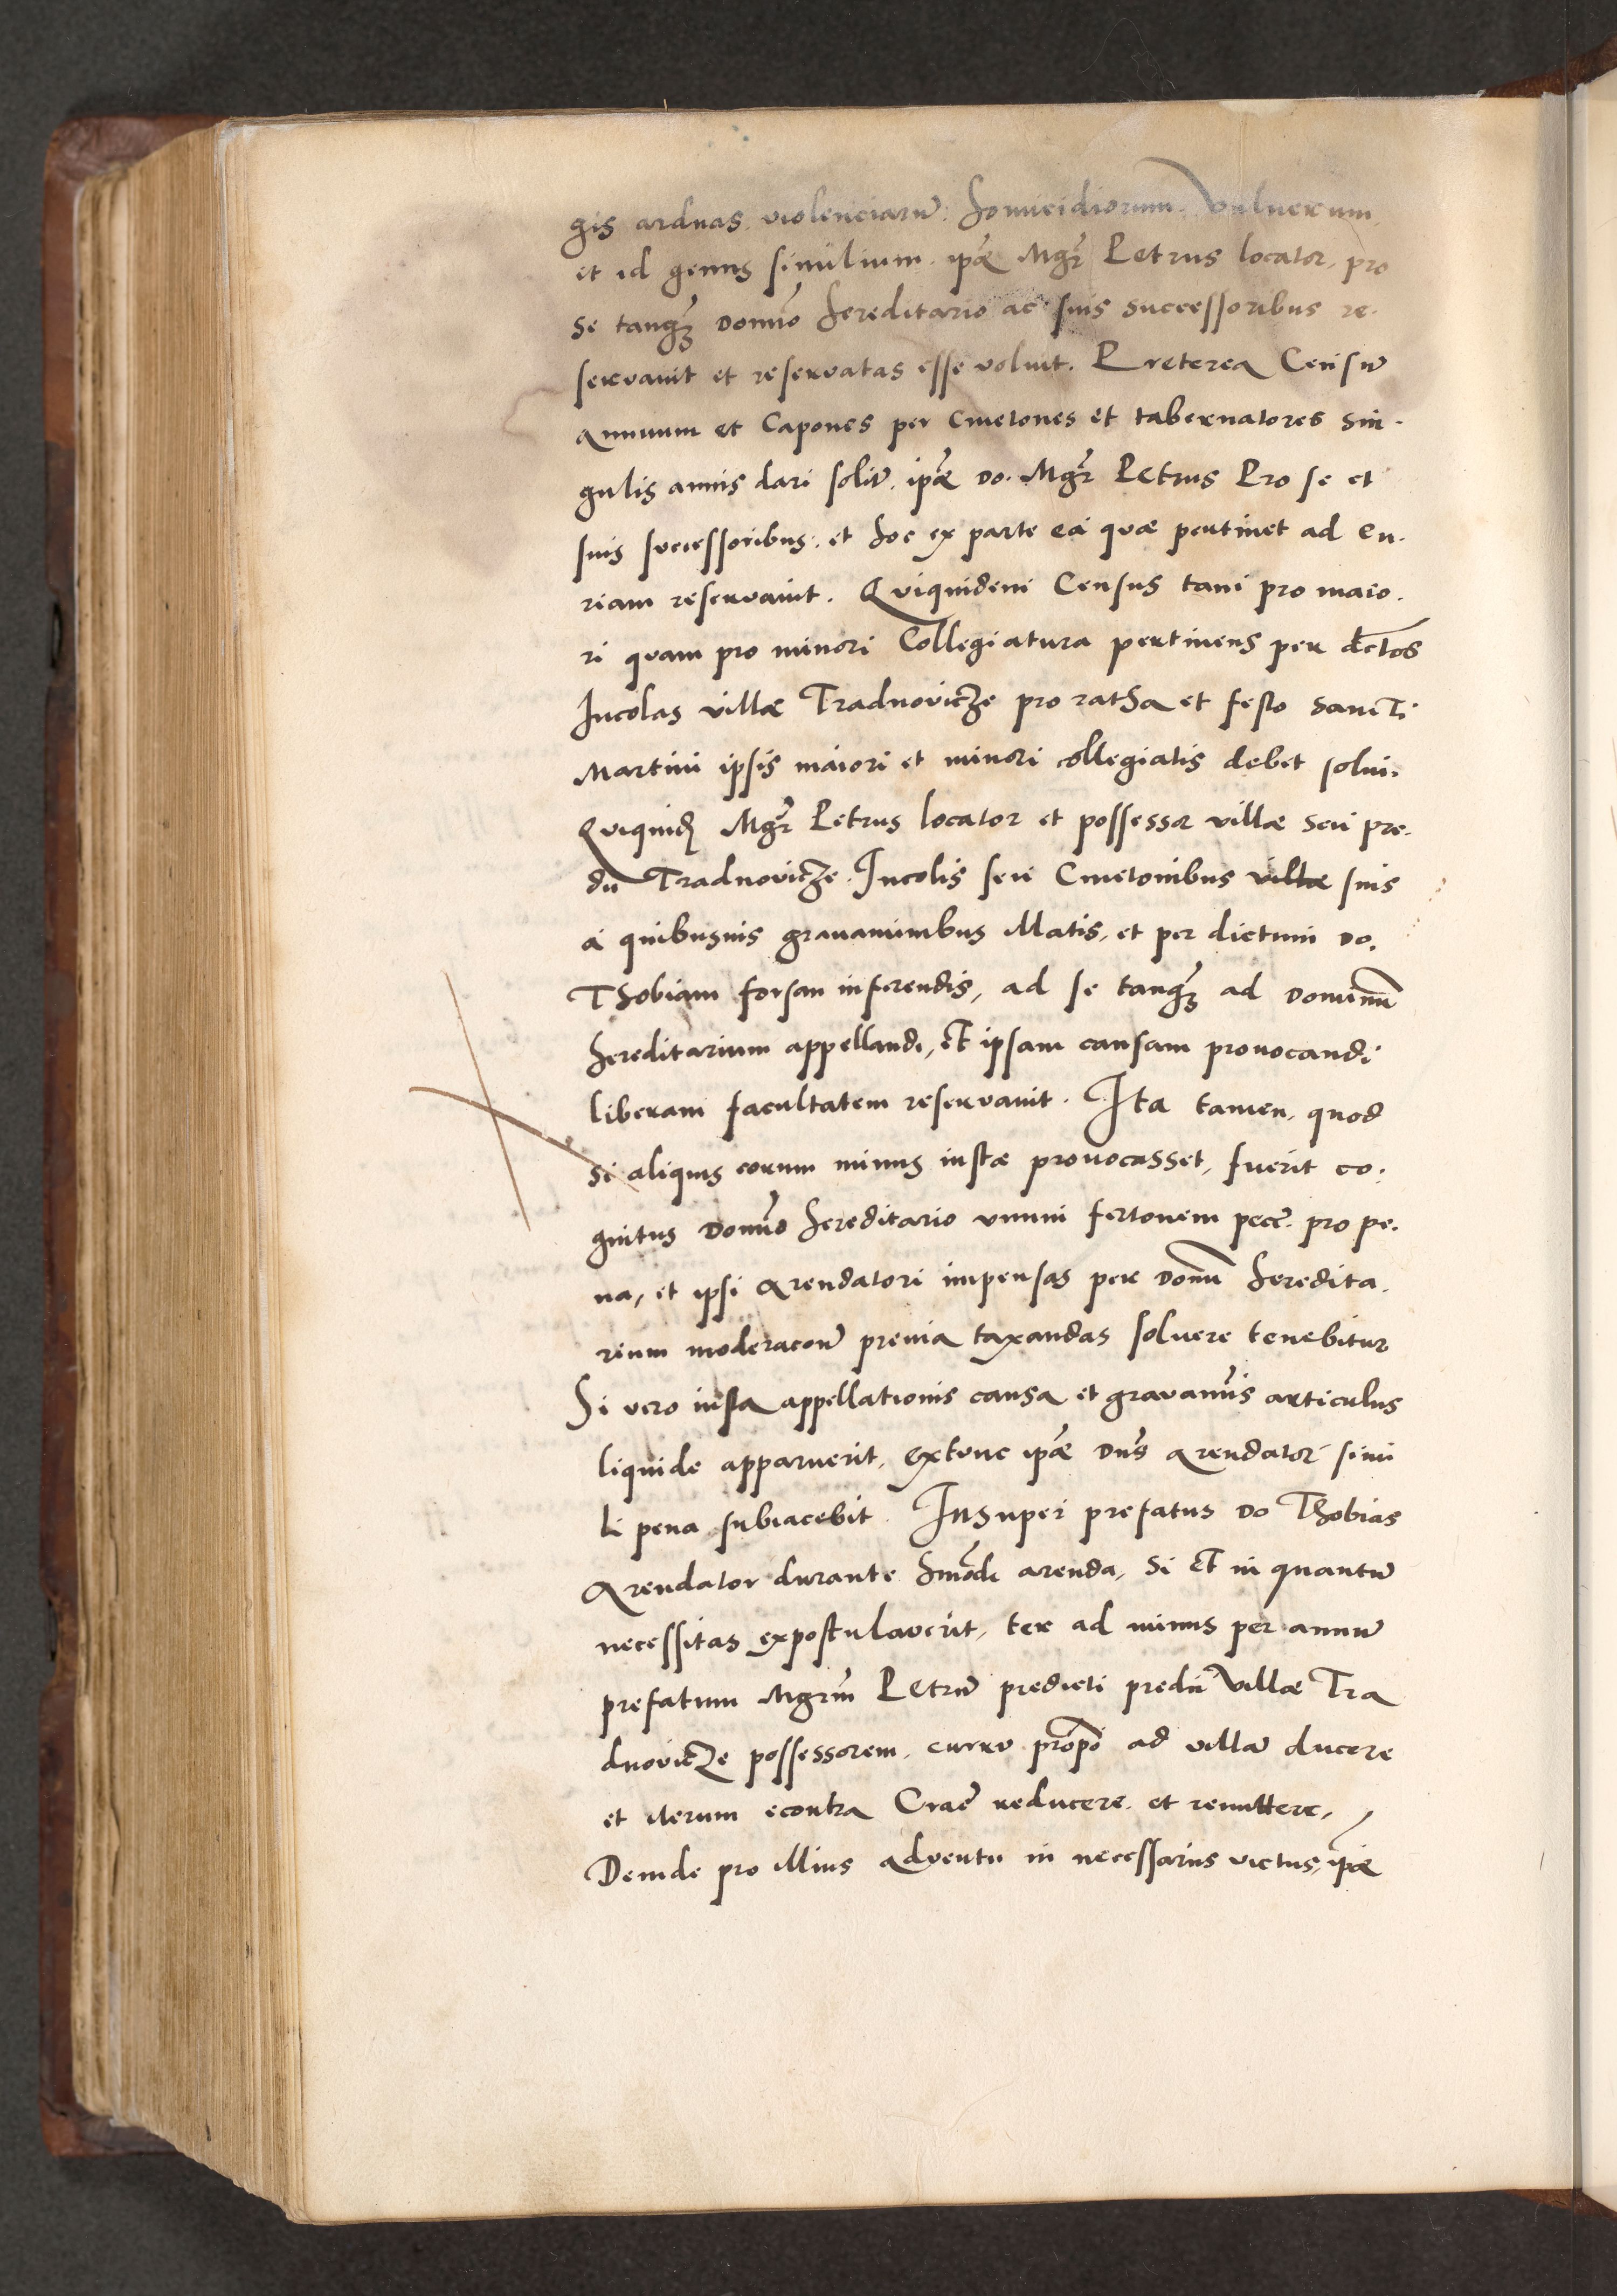 gis arduas. violenciarũ. homicidiorum. Vulnerum.
et id genus similium. ip̃e Mgr̃ Petrus locator, pro
se tanq̃ȝ Domĩo hereditario ac suis successoribus re-
servavit et reservatas esse voluit. Preterea Censũ
annuum et Capones per Cmetones et tabernatores sin-
gulis annis dari solitũ. ip̃e Do. Mgr̃ Petrus Pro se et
suis successoribus. et hoc ex parte ea quæ pertinet ad Cu-
riam reservavit. Quiquidem Census tam pro maio-
ri quam pro minori Collegiatura pertinens per dictos
Incolas villæ Tradnovicze pro ratha et festo Sancti
Martini ipsis maiori et minori collegiatis debet solui.
Quiquidẽ Mgr̃ Petrus locator et possessor villæ seu pre-
dii Tradnovicze. Incolis seu Cmetonibus villæ suis
a quibusvis gravaminibus illatis, et per dictum Do.
Thobiam forsan inferendis, ad se tanq̃ȝ ad Dominũ
hereditarium appellandi, et ipsam causam provocandi
liberam facultatem reservavit. Ita tamen, quod
si aliquis eorum minus iustæ provocasset, fuerit co-
gnitus Domĩo hereditario unum fertonem pecc̃. pro pe-
na, et ipsi Arendatori impensas per Domũ heredita-
rium moderacoñe previa taxandas solvere tenebitur
Si vero iusta appellationis causa et gravamĩs articulus
liquide apparuerit, extunc ip̃e Dñs Arendator simi
li pena subiacebit. Insuper prefatus Do Thobias
Arendator durante hmõdi arenda, si et in quantũ
necessitas expostulaverit, ter ad minus per annũ
prefatum Mgrũm Petrũ predicti predii Villæ Tra
dnovicze possessorem. curru prop̃o ad villã ducere
et iterum econtra Crac̃ reducere. et remittere,
Deinde pro illius adventu in necessariis victus, ip̃æ